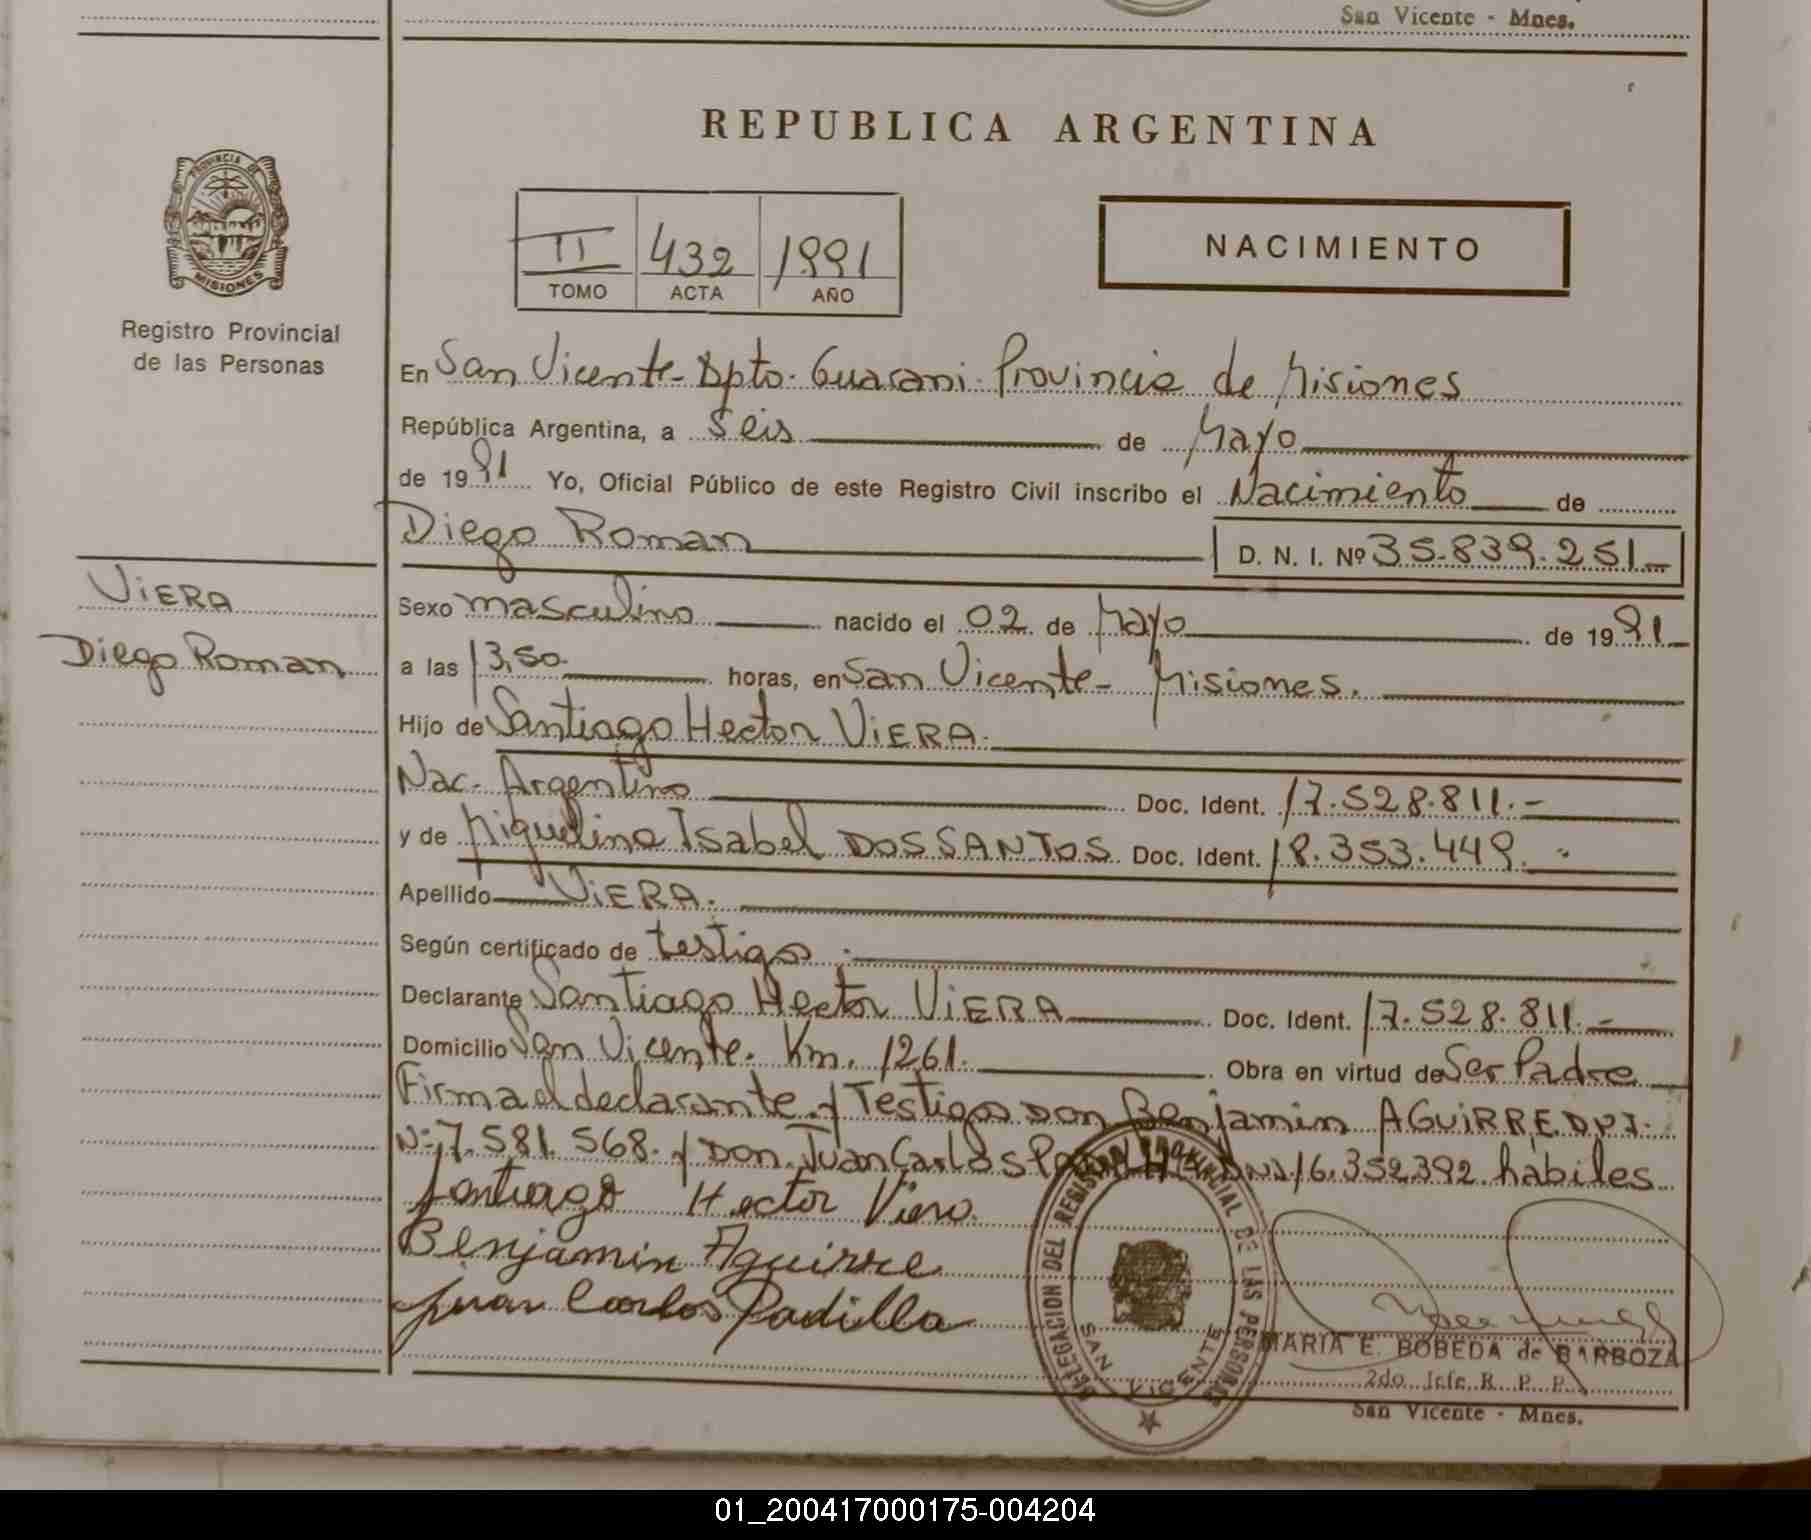 San Vicente - Mnes.
REPUBLICA ARGENTINA
PROVINCIA DE MISIONES
Registro Provincial
de las Personas
II 432 1991
TOMO ACTA AÑO
NACIMIENTO
En San Vicente - Dpto. Guarani. Provincia de Misiones
República Argentina, a seis de Mayo
de 1991 Yo, Oficial Público de este Registro Civil inscribo el Nacimiento de
Diego Roman D. N. I. Nº 35.839.251
VIERA
Diego Roman
Sexo masculino nacido el 02 de Mayo de 1991
a las 13,50 horas, en San Vicente - Misiones.
Hijo de Santiago Hector VIERA.
Nac. Argentino Doc. Ident. 17.528.811.-
y de Miguelina Isabel DOS SANTOS Doc. Ident. 18.353.449.-
Apellido VIERA.
Según certificado de testigo.
Declarante Santiago Hector VIERA Doc. Ident. 17.528.811.-
Domicilio San Vicente. Km. 1261. Obra en virtud de Ser Padre
Firma el declarante y Testigos Don Benjamin AGUIRRE
Nº 7.581.568. y Don Juan Carlos 16.352.392 hábiles
Santiago Hector Viera
Benjamin Aguirre
Juan Carlos Padilla
DELEGACION DEL REGISTRO PROVINCIAL DE LAS PERSONAS
SAN VICENTE
MARIA E. BOBEDA de BARBOZA
2do. Jefe R. P. P.
San Vicente - Mnes.
01_200417000175-004204